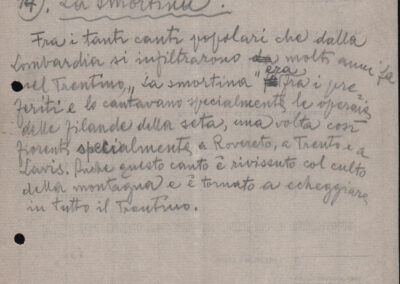 14). La smortina.
Fra i tanti canti popolari che dalla
Lombardia si infiltrarono molti anni fa
nel Trentino, "La smortina" era fra i pre
feriti e lo cantavano specialmente le operaie
delle filande della seta, una volta così
fiorenti specialmente a Rovereto, a Trento e a
Lavis. Anche questo canto è rivissuto col culto
della montagna e è tornato a echeggiare
in tutto il Trentino.